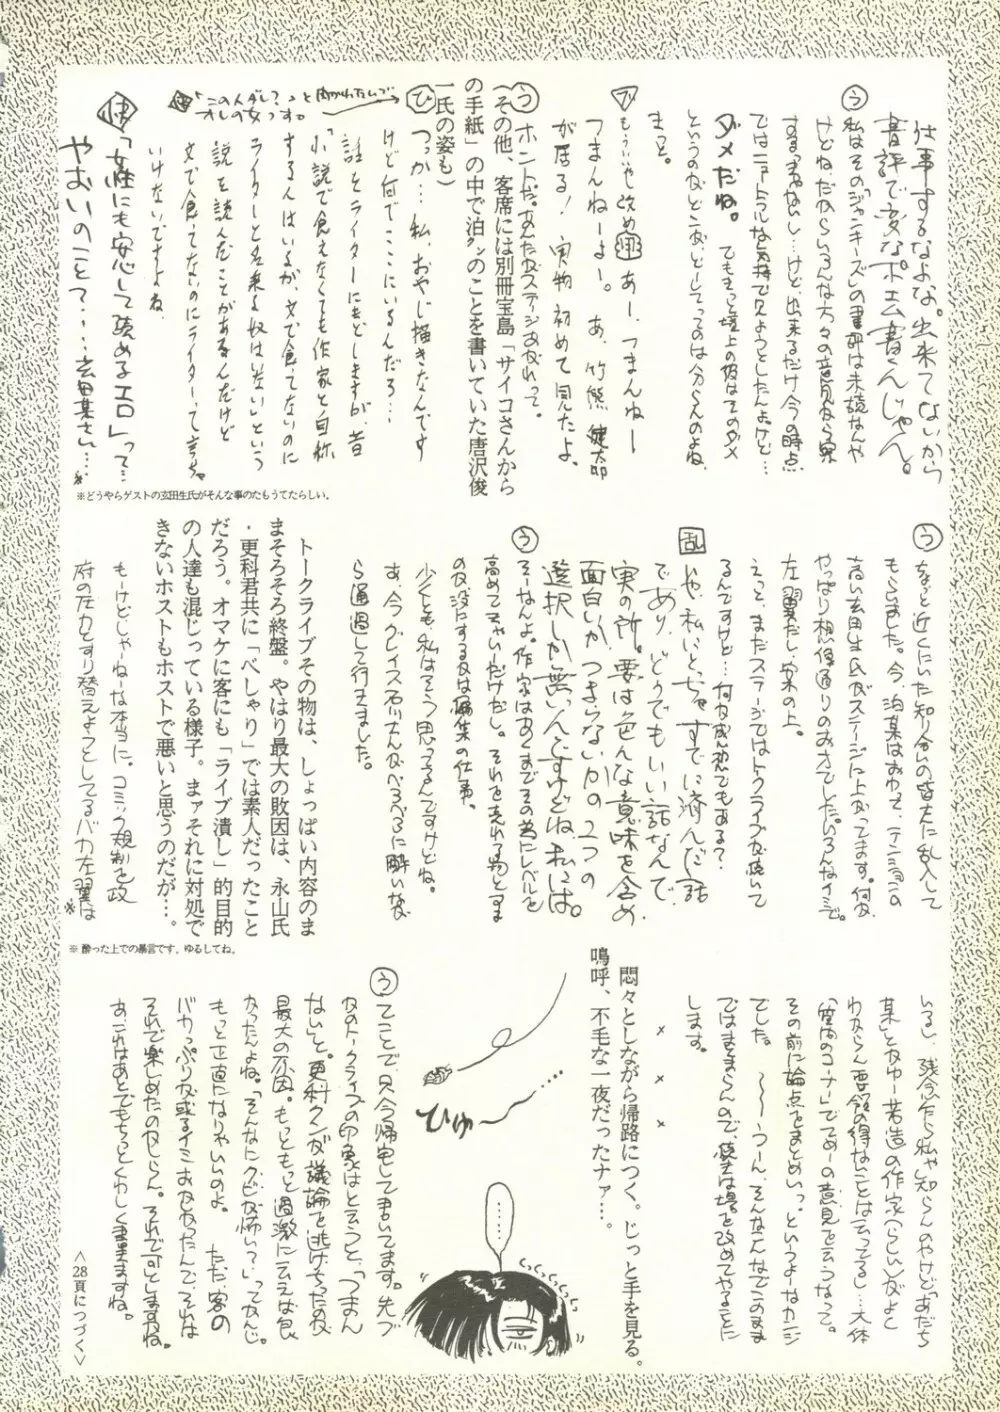 仕事するなよな。出来てないから
書評で変なポエム書くんじゃん。
う
私はその「ジャンキーズ」の書評は未読なんや
けどね。だからいろんな方々の意見から察
するまねない…けど、出来るだけ今の時点
ではニュートラルな気持で見ようとしたんよ。けど…
ダメだね。 でもきっと壇上の彼はそのダメ
というのがどこが、どーしてってのは分らんのよね
きっと。
あー、つまんねー
つまんねーよー。 あ、竹熊健太郎
が居る！ 実物初めて見たよ。
う
ホントだ。あんたがステージあがれって。
(その他、客席には別冊宝島「サイコさんから
の手紙」の中で泊クンのことを書いていた唐沢俊
一氏の姿も)
ひ
つっか…私、おやじ描きなんです
けど何でここにいるんだろ…
話をライターにもどしますが、昔
「小説で食えなくても作家と自称
する人はいるが、文で食てないのに
ライターとを乗る奴はいない」という
説を読んだことがあるんだけど
文で食ってないのにライターって言っちゃ
いけないですよね。
「このひとダレ？」と聞かれたいで
オレの女っす。
「女性にも安心して読めるエロ」って…
やおいのこと？…玄田某さん…※
※どうやらゲストの玄田生氏がそんな事のたもうてたらしい。
う
なんと近くにいた知り合いの皆さんに乱入して
もらいました。今、泊某はおわって、テンションの
高い玄田生氏がステージに上がってます。何か
やっぱり想像通りのお方でした。いろんなイミで。
左翼だし、案の上。
えっと、まだステージではトークライブが続いて
るんですけど…何か感想でもある？
乱
いや、私にとっちゃすでに済んだ話
であり、どうでもいい話なんで
実の所。要は色んな意味を含め
面白いか つまらないかの2つの
選択しか無いんですけどね私には。
う
そーなんよ。作家はあくまでその為にレベルを
高めてきゃいーだけだし。それを売れる物とする
か没にするかは編集の仕事。
少くとも私はそう思ってるんですけどね。
あ、今グレイス石川さんがべろべろに酔いなが
ら通過して行きました。
トークライブその物は、しょっぱい内容のま
まそろそろ終盤。やはり最大の敗因は、永山氏
・更科君共に「べしゃり」では素人だったこと
だろう。オマケに客にも「ライブ潰し」的目的
の人達も混じっている様子。まァそれに対処で
きないホストもホストで悪いと思うのだが…。
もーけどじゃねーな本当に。コミック規制を政
府の圧力とすり替えよーとしてるバカ左翼は※
※ 酔った上での暴言です。ゆるしてね。
いるし、残念乍ら私ゃ知らんのやけど「あだち
某」とかゆー若造の作家(らしい)がよと
わからん要領の得ないことは云ってるし…大体
「室内のコーナー」でてめーの意見を云うなって。
その前に論点をまとめいっ。というよーなカンジ
でした。 ～～～つーん、そんなんなでこのまま
ではまとまらんので、続きは場を改めてやることに
します。
× × ×
悶々としながら帰路につく。じっと手を見る。
嗚呼、不毛な一夜だったナァ…。
ひゅ～…
………
う
てことで只今帰宅して書いてます。先ヅ
かのトークライブの印象はと云うと、「つまん
ない」と。更科クンが議論を逃げちったのが
最大の敗因。もっともっと過激に云えば良
かったんよね。「そんなにクビが怖い？」ってかんじ。
もっと正直になりゃいいのよ。 ただ、客の
バカっぷりが或るイミおかしかったんで、そいは
それで楽しめたのかしらん。それで可としますね。
あ、これはあとでもちっとくわしく書きますね。
＜28頁につづく＞